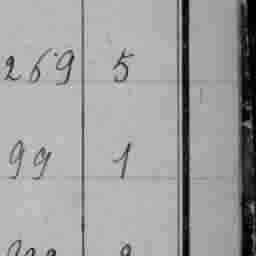 269 5
99 1